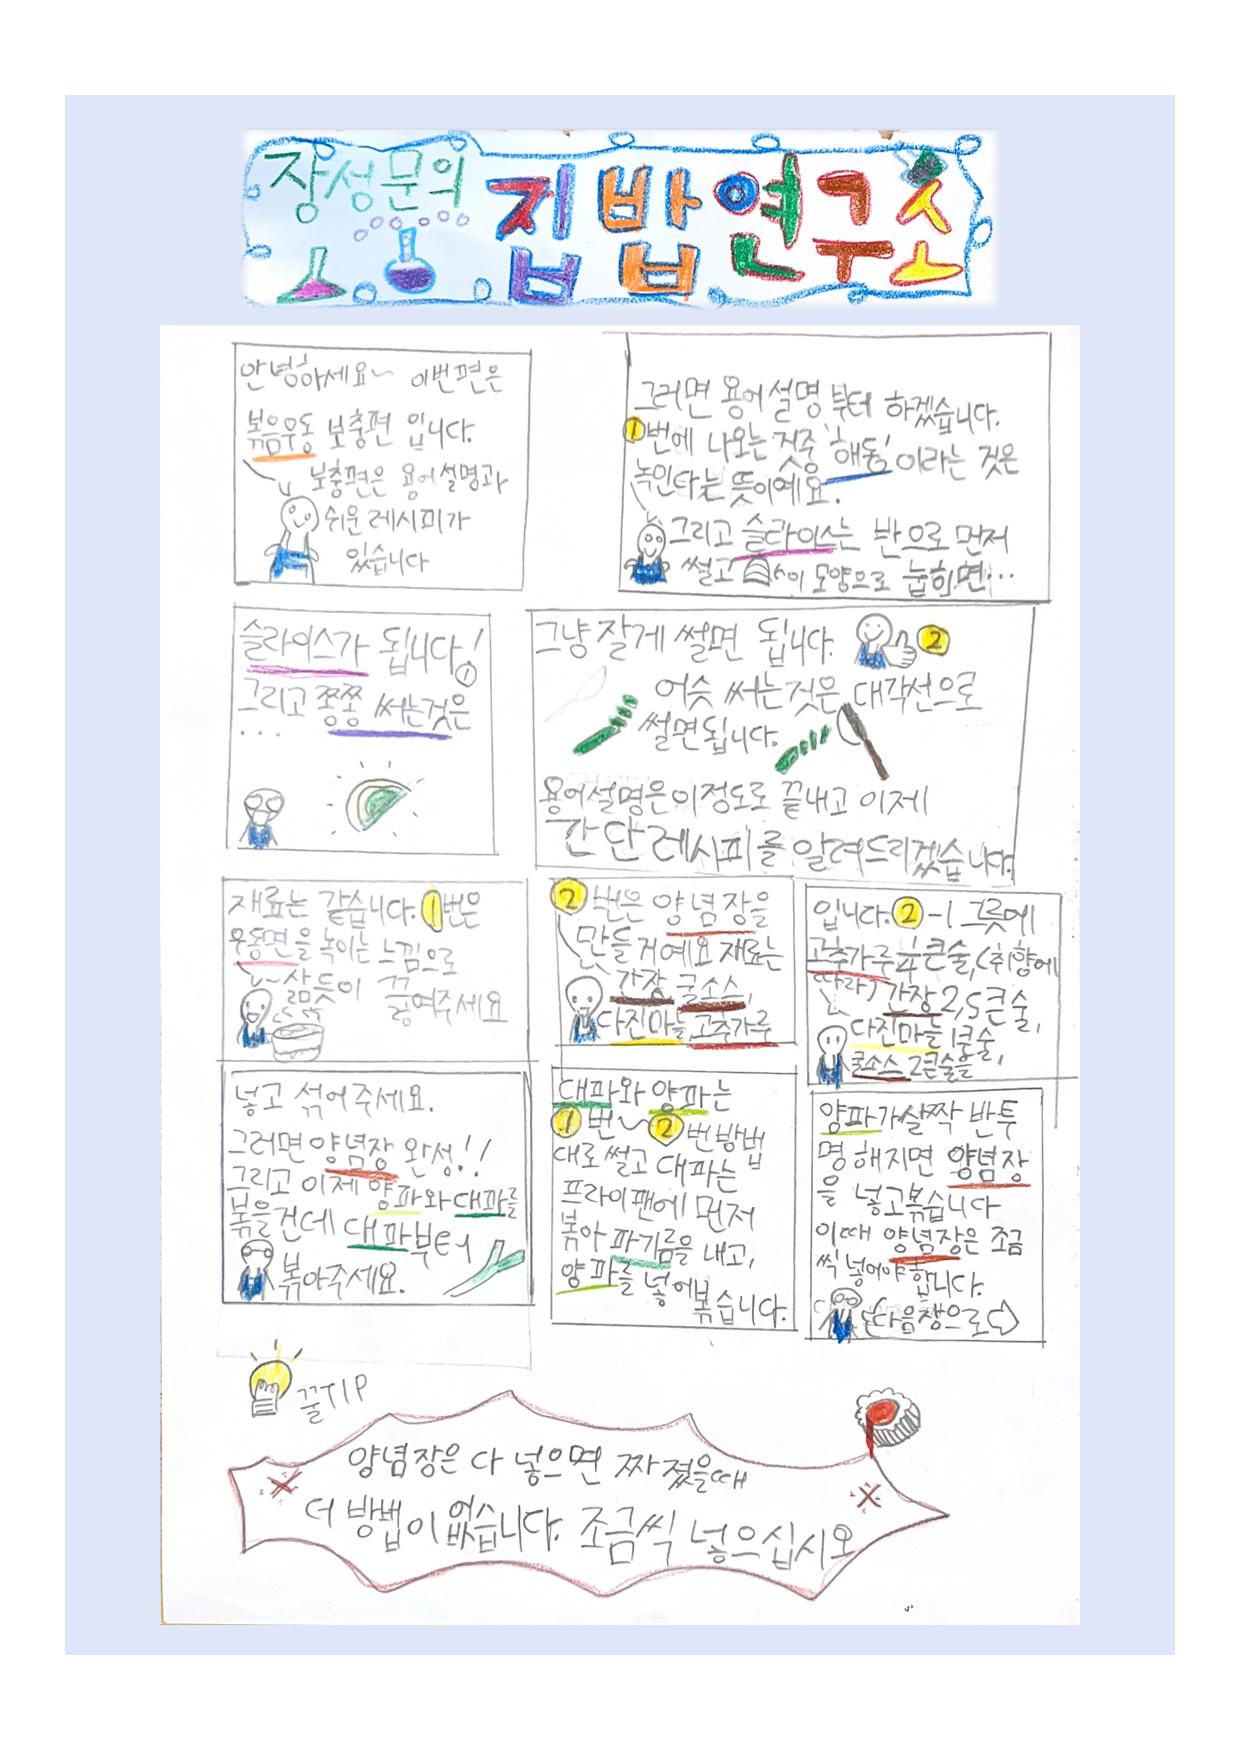 장성문의 집밥연구소
안녕하세요~ 이번편은
볶음우동 보충편 입니다.
보충편은 용어설명과
쉬운레시피가
있습니다
그러면 용어설명부터 하겠습니다.
①번에 나오는 것중 '해동'이라는 것은
녹인다는 뜻이에요.
그리고 슬라이스는 반으로 먼저
썰고 이 모양으로 눕히면...
슬라이스가 됩니다!
그리고 쫑쫑 써는것은
...
그냥 잘게 썰면 됩니다. ②
어슷 써는것은 대각선으로
썰면됩니다.
용어설명은이정도로 끝내고 이제
간단레시피를 알려드리겠습니다.
재료는 같습니다. ①번은
우동면을 녹이는 느낌으로
삶듯이 끓
여주세요
②번은 양념장을
만들거예요 재료는
간장, 굴소스,
다진마늘, 고추가루
입니다. ②-1 그릇에
고추가루 4큰술, (취향에
따라) 간장2,5큰술,
다진마늘 1큰술,
굴소스 2큰술을,
넣고 섞어주세요.
그러면 양념장 완성!!
그리고 이제 양파와 대파를
볶을건데 대파부터
볶아주세요.
대파와 양파는
①번~②번방법
대로썰고 대파는
프라이팬에 먼저
볶아 파기름을 내고,
양파를 넣어볶습니다.
양파가살짝 반투
명 해지면 양념장
을 넣고볶습니다
이때 양념장은 조금
씩 넣어야합니다.
(다음장으로
꿀TIP
양념장은 다 넣으면 짜졌을때
더 방법이 없습니다. 조금씩 넣으십시오